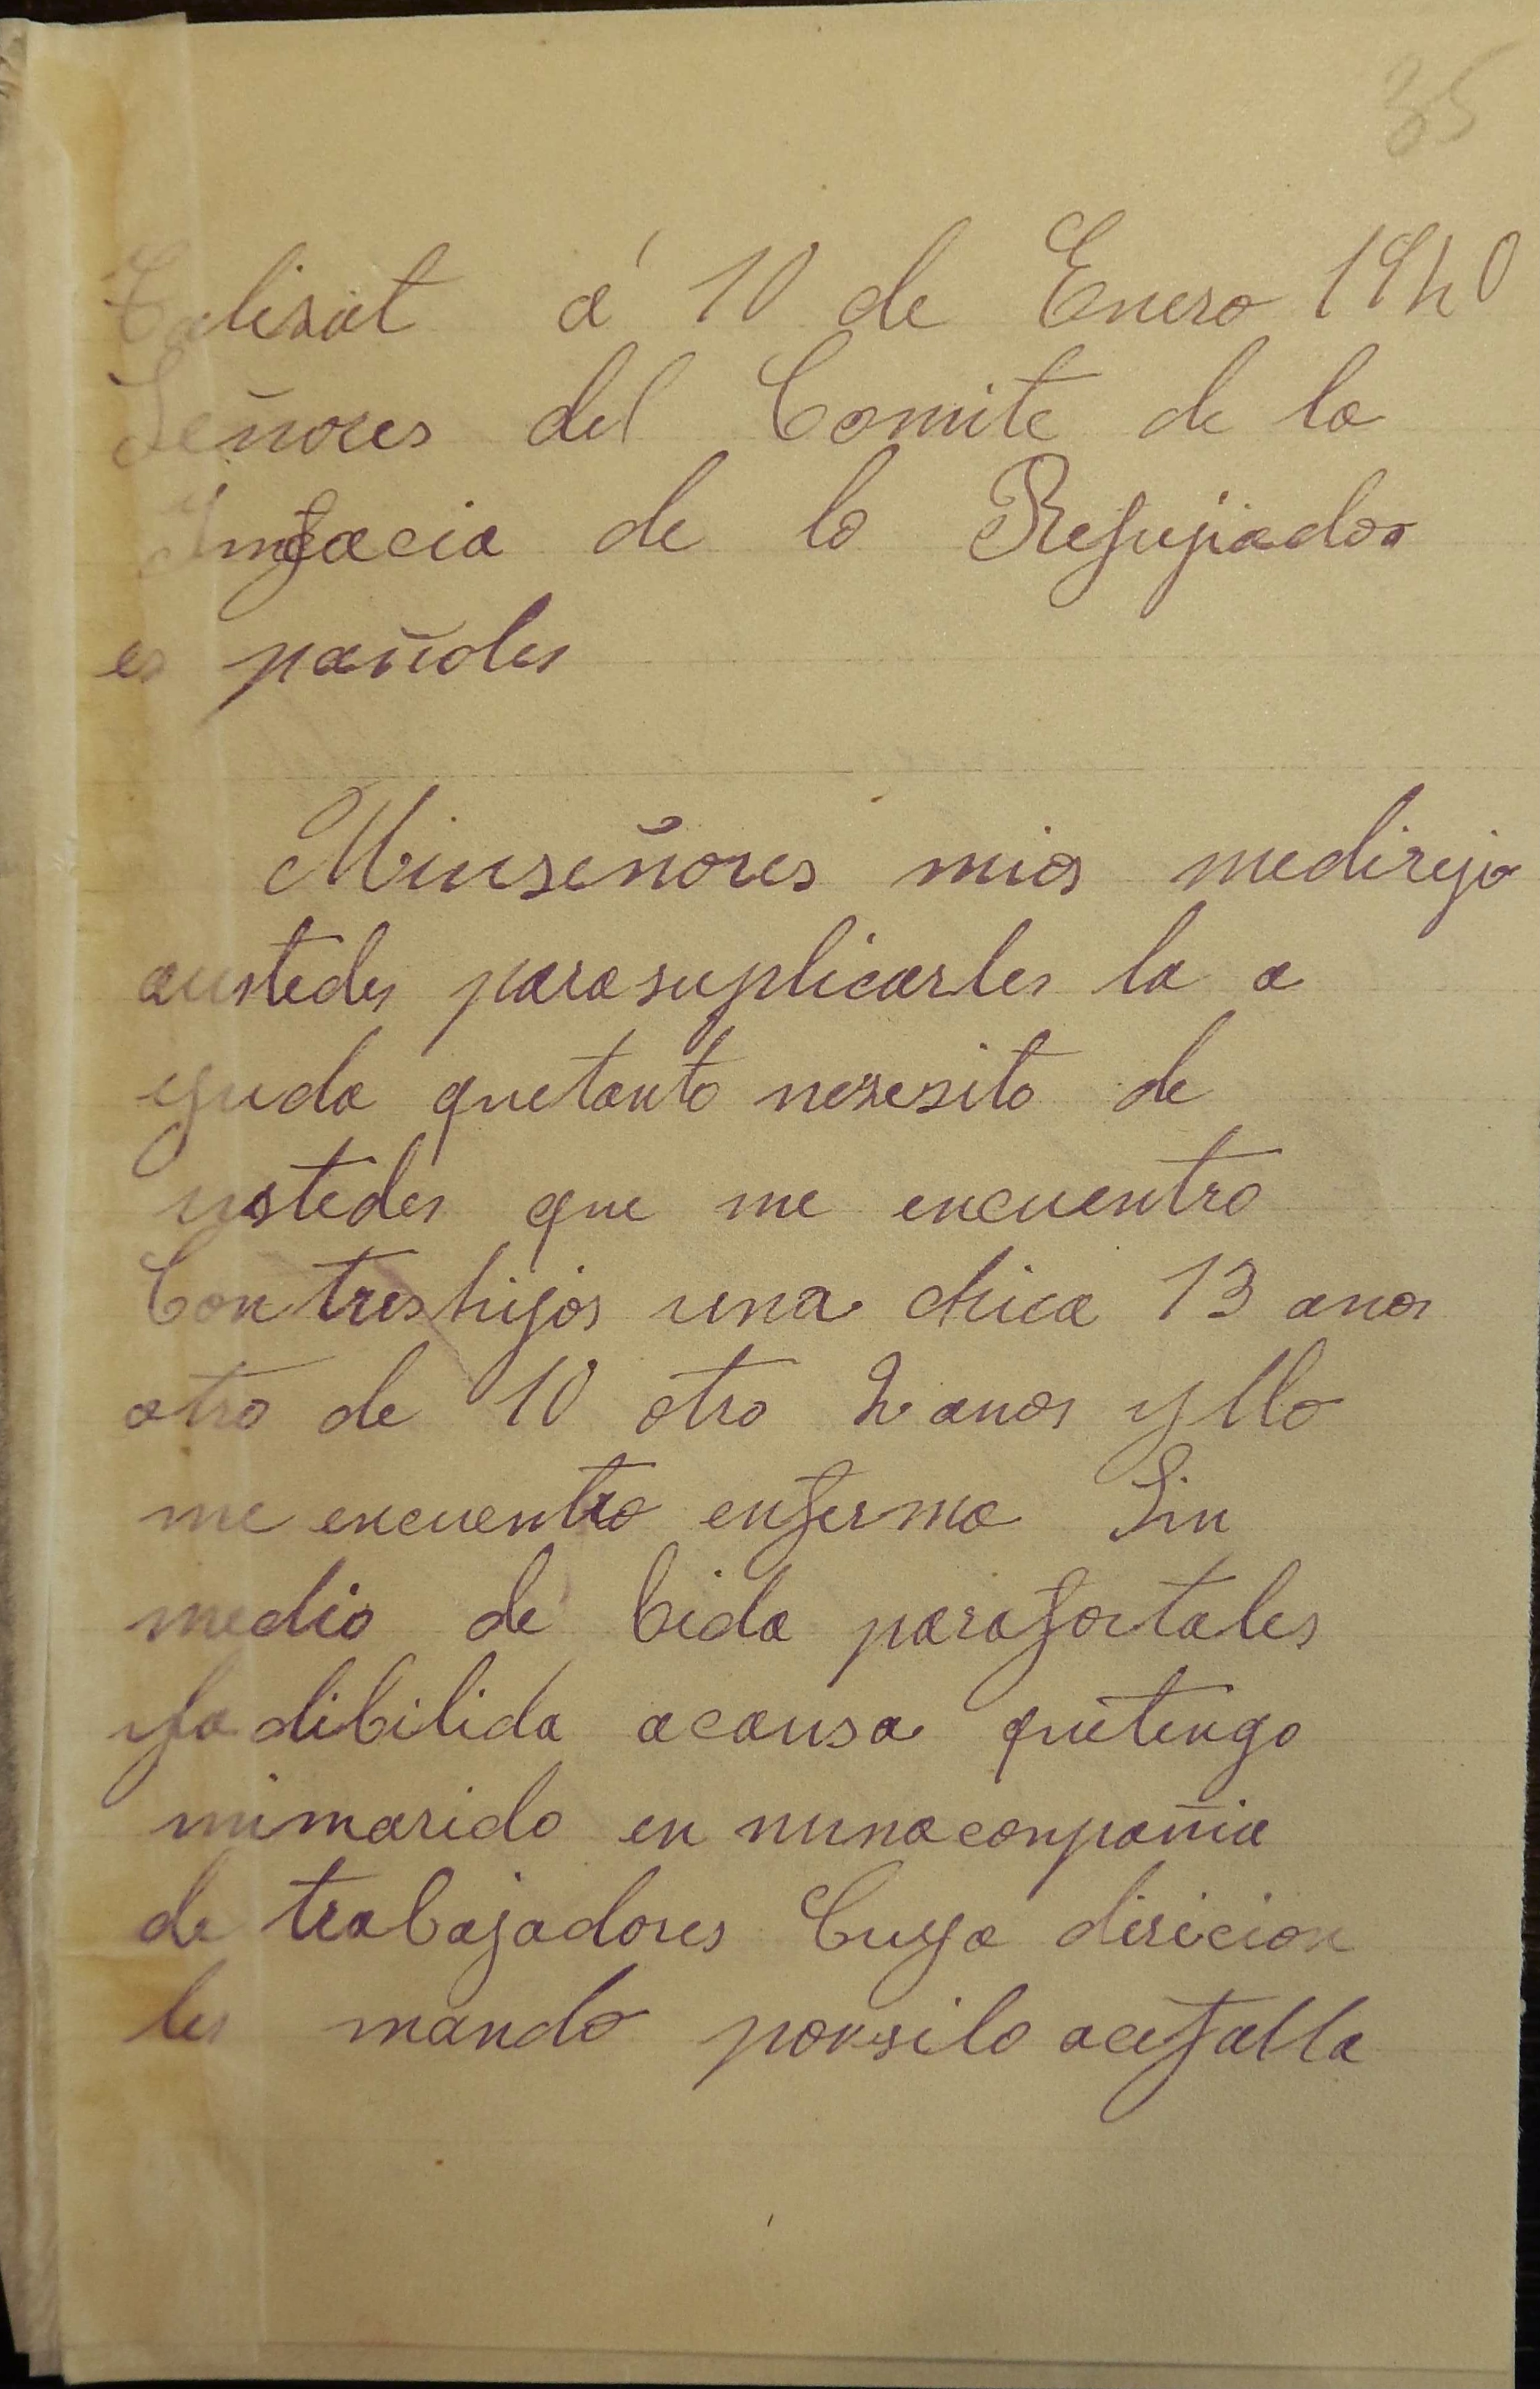 35
Calisat á 10 de Enero 1940
Señores del Comite de la
Imfacia de lo Refujiados
es pañoles
Miuseñores mios medirijo
austedes parasuplicarles la a
yuda quetanto nesesito de
ustedes que me encuentro
Contreshijos una chica 13 anos
otro de 10 otro 2 anos y llo
me encuentro enferma Sin
medio de bida parafortales
yla dibilida acausa quetengo
mimarido en nunaconpañia
de trabajadores Cuya diricion
les mando porsilo acefalla